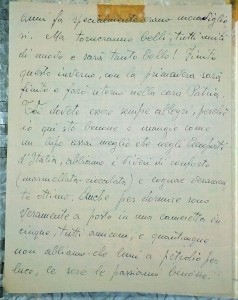 anni fa specialmente erano meravigliosi
si. Ma torneranno belli, tutti uniti
di nuovo e sarà tanto bello! Finito
questo inverno, con la primavera sarà
finito e farò ritorno nella cara Patria.
Voi dovete essere sempre allegri, perchè
io qui sto benone e mangio come
un lupo assai meglio che negli
d'Italia, abbiamo i viveri di conforto
(marmellata cioccolata) e cognac
te ottimo. Anche per dormire sono
veramente a posto in una cameretta in
cinque, tutti amiconi, e quantunque
non abbiamo che lumi a petrolio per
luce, le sere le passiamo benone.